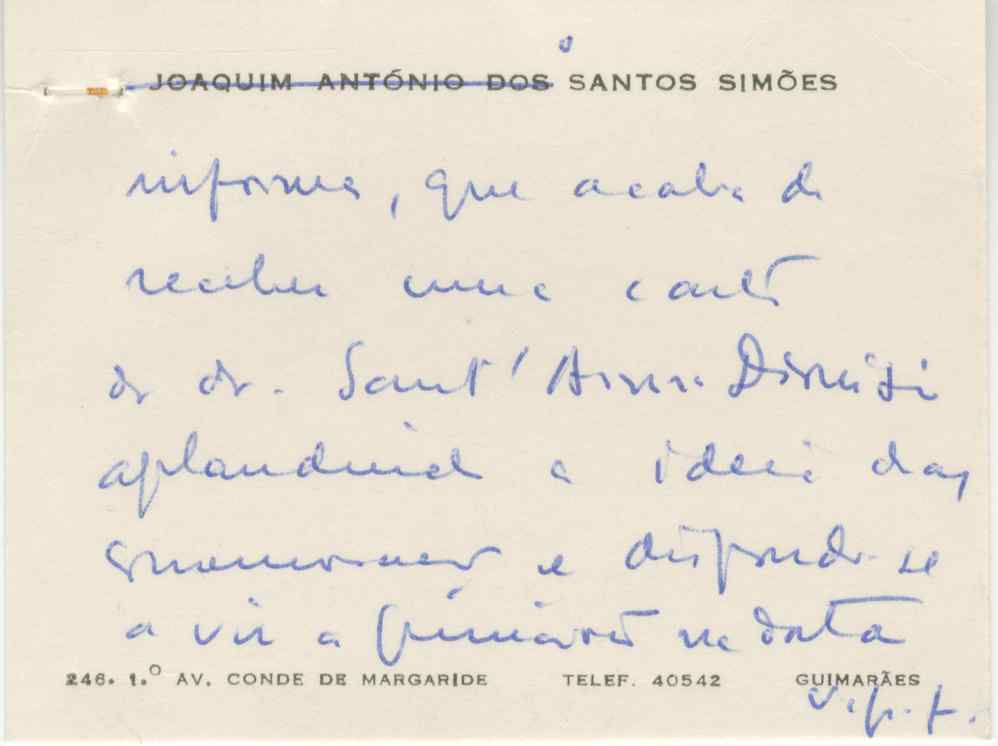 o
JOAQUIM ANTÓNIO DOS SANTOS SIMÕES
informa, que acaba de
receber uma carta
do dr. Sant'Anna Dionísio
aplaudindo a ideia das
comemorações e dispondo-se
a vir a Guimarães na data
246. 1.º AV. CONDE DE MARGARIDE TELEF. 40542 GUIMARÃES
v.p.f.